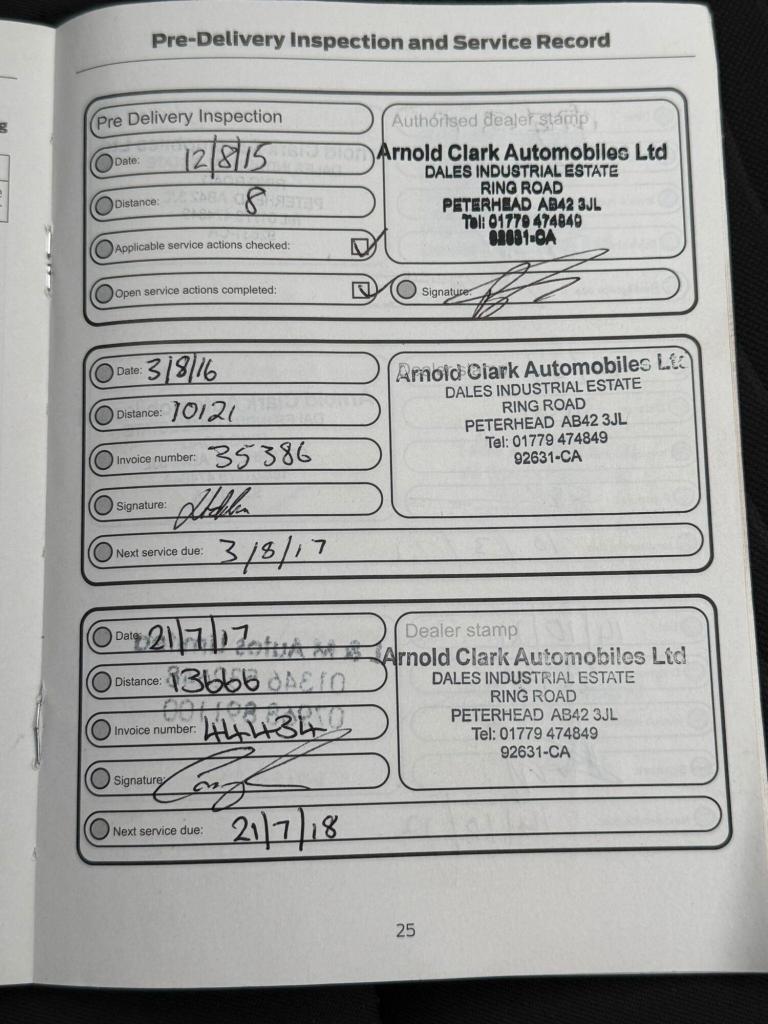 Pre-Delivery Inspection and Service Record
Pre Delivery Inspection
Date: 12/8/15
Distance: 8
Applicable service actions checked:
Open service actions completed:
Authorised dealer stamp
Arnold Clark Automobiles Ltd
DALES INDUSTRIAL ESTATE
RING ROAD
PETERHEAD AB42 3JL
Tel: 01779 474849
92631-CA
Signature:
Date: 3/8/16
Distance: 10121
Invoice number: 35386
Signature:
Next service due: 3/8/17
Dealer stamp
Arnold Clark Automobiles Ltd
DALES INDUSTRIAL ESTATE
RING ROAD
PETERHEAD AB42 3JL
Tel: 01779 474849
92631-CA
Date: 21/7/17
Distance: 13666
Invoice number: 44434
Signature:
Next service due: 21/7/18
Dealer stamp
Arnold Clark Automobiles Ltd
DALES INDUSTRIAL ESTATE
RING ROAD
PETERHEAD AB42 3JL
Tel: 01779 474849
92631-CA
25